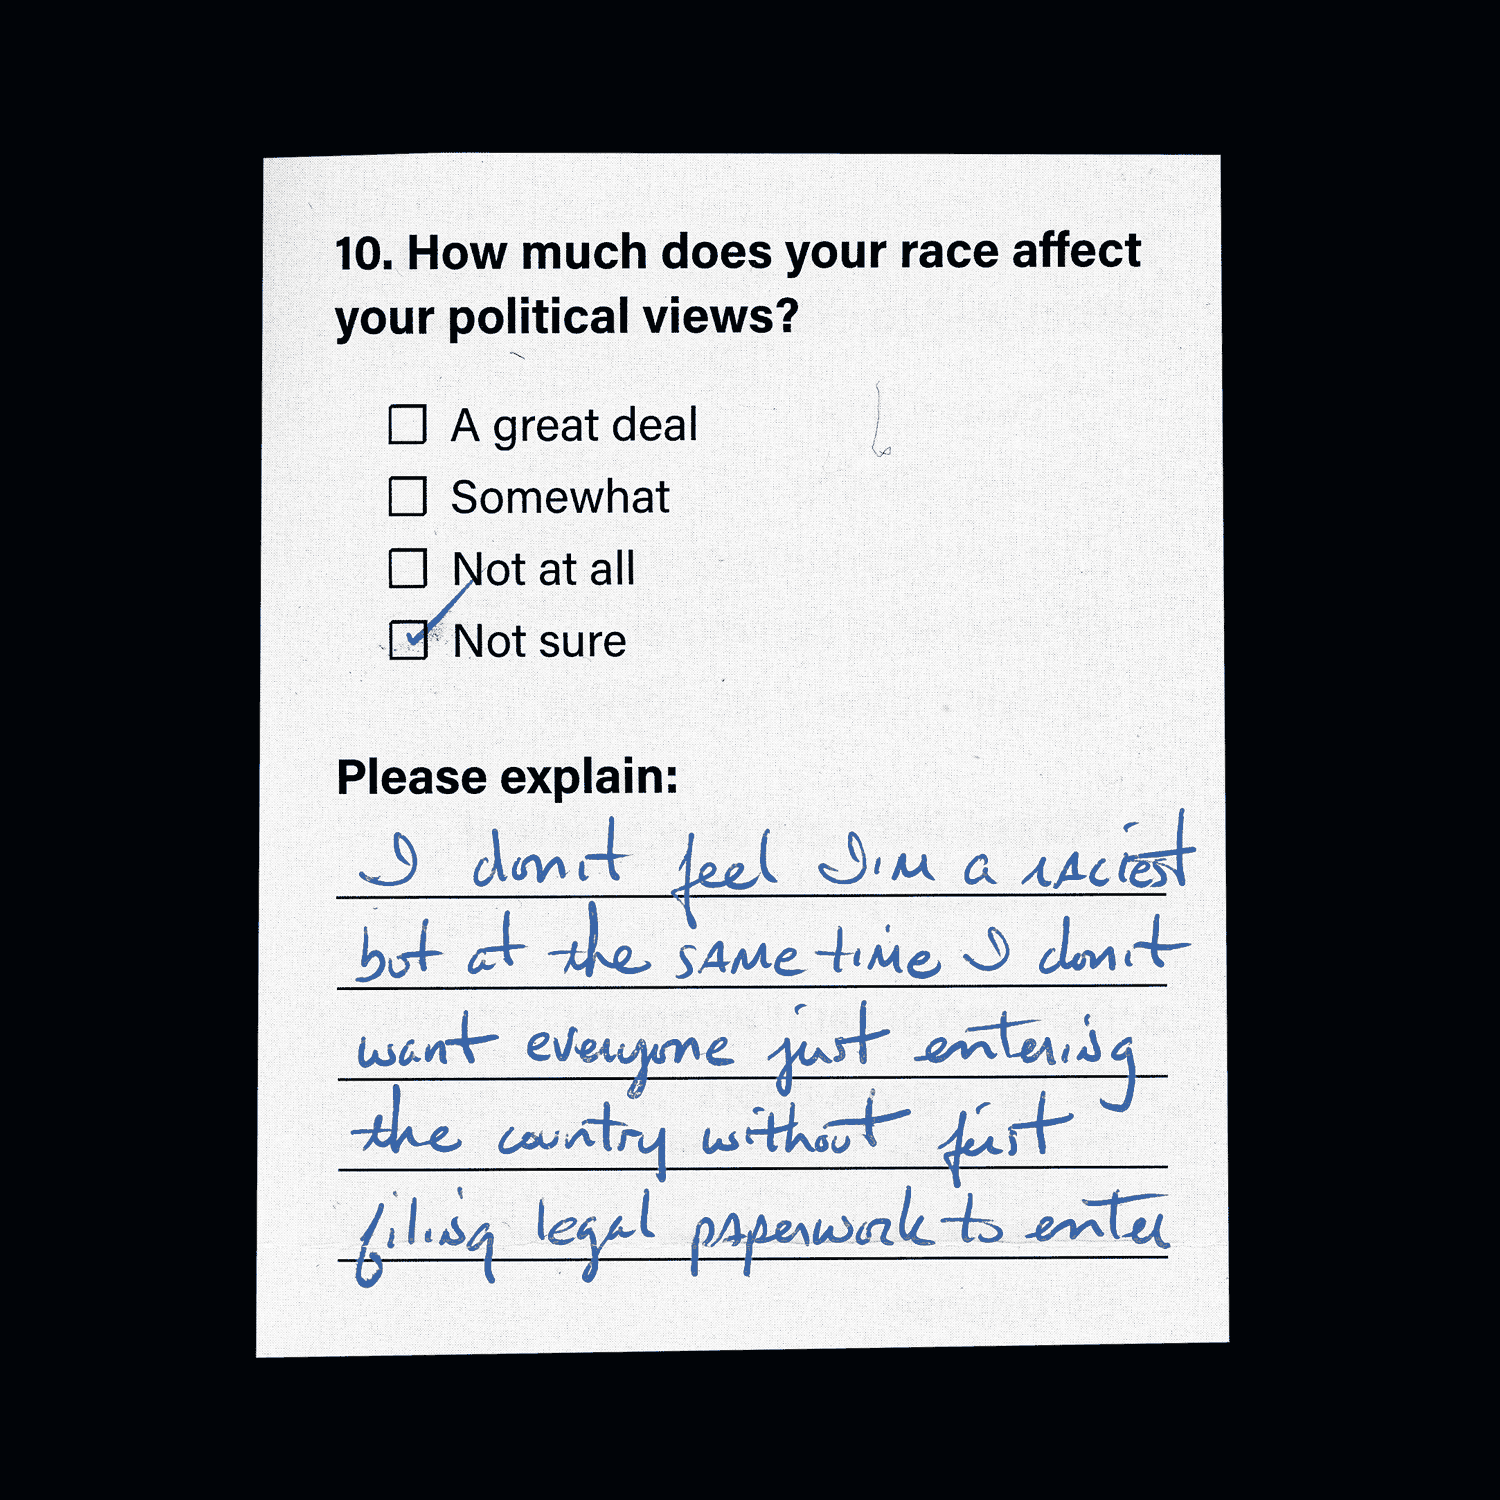 10. How much does your race affect
your political views?
A great deal
Somewhat
Not at all
Not sure
Please explain:
I don't feel I'm a raciest
but at the same time I don't
want everyone just entering
the country without first
filing legal paperwork to enter